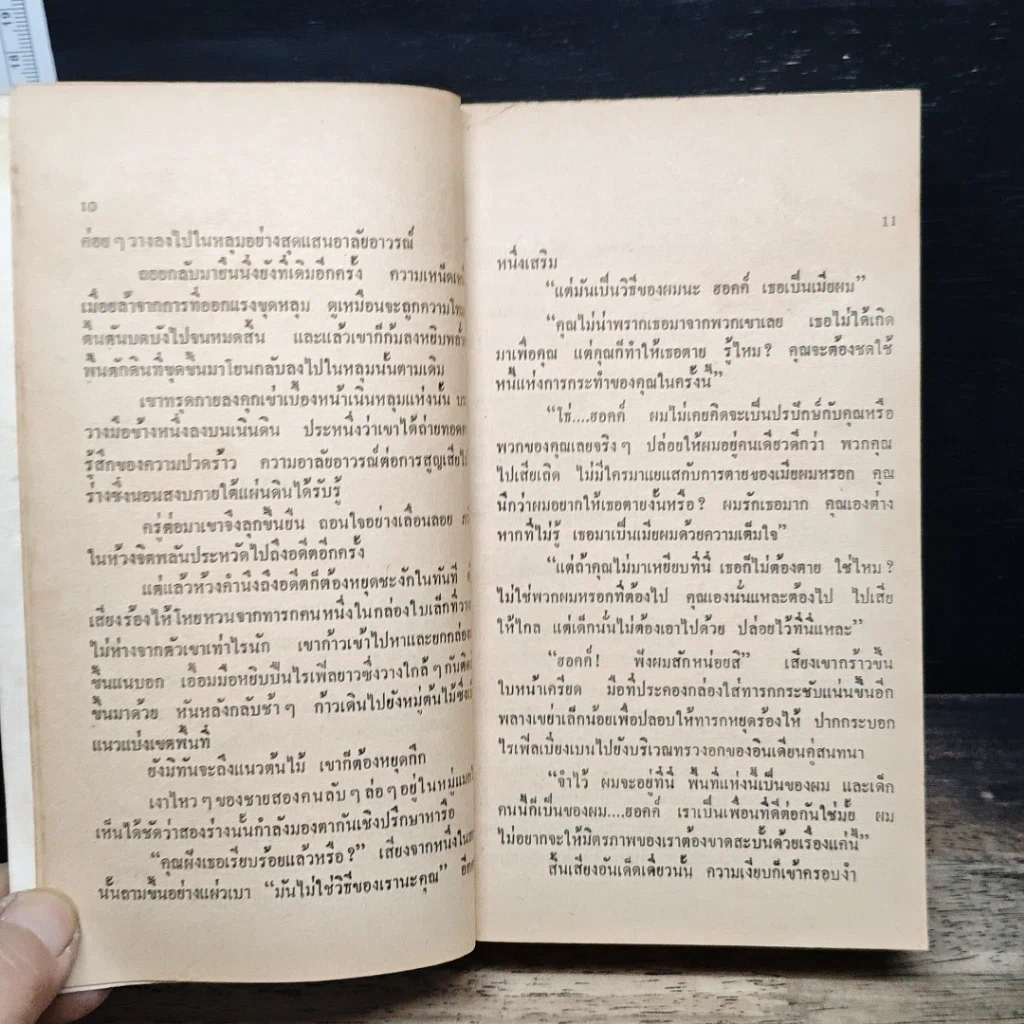 19
18
10
ค่อย ๆ วางลงไปในหลุมอย่างสุดแสนอาลัยอาวรณ์
ถอยกลับมายืนนิ่งยังที่เดิมอีกครั้ง ความเหน็ดเห
เมื่อยล้าจากการที่ออกแรงขุดหลุม ดูเหมือนจะถูกความโทม
ตื้นตันบดบังไปจนหมดสิ้น และแล้วเขาก็ก้มลงหยิบพลั่ว
พื้นตักดินที่ขุดขึ้นมาโยนกลับลงไปในหลุมนั้นตามเดิม
เขาทรุดกายลงคุกเข่าเบื้องหน้าเนินหลุมแห่งนั้น
วางมือข้างหนึ่งลงบนเนินดิน ประหนึ่งว่าเขาได้ถ่ายทอด
รู้สึกของความปวดร้าว ความอาลัยอาวรณ์ต่อการสูญเสีย
ร่างซึ่งนอนสงบภายใต้แผ่นดินได้รับรู้
ครู่ต่อมาเขาจึงลุกขึ้นยืน ถอนใจอย่างเลื่อนลอย
ในห้วงจิตพลันประหวัดไปถึงอดีตอีกครั้ง
แต่แล้วห้วงคำนึงถึงอดีตก็ต้องหยุดชะงักในทันที
เสียงร้องไห้โหยหวนจากทารกคนหนึ่งในกล่องใบเล็กที่วาง
ไม่ห่างจากตัวเขาเท่าไรนัก เขาก้าวเข้าไปหาและยกกล่อง
ขึ้นแนบอก เอื้อมมือหยิบปืนไรเฟิลยาวซึ่งวางใกล้ ๆ กัน
ขึ้นมาด้วย หันหลังกลับช้า ๆ ก้าวเดินไปยังหมู่ต้นไม้ซึ่ง
แนวแบ่งเขตพื้นที่
ยังมิทันจะถึงแนวต้นไม้ เขาก็ต้องหยุดกึก
เงาไหว ๆ ของชายสองคนลับ ๆ ล่อ ๆ อยู่ในหมู่แมกไ
เห็นได้ชัดว่าสองร่างนั้นกำลังมองตากันเชิงปรึกษาหารือ
“คุณฝังเธอเรียบร้อยแล้วหรือ?” เสียงจากหนึ่งใน
นั้นถามขึ้นอย่างแผ่วเบา “มันไม่ใช่วิธีของเรานะคุณ”
11
หนึ่งเสริม
“แต่มันเป็นวิธีของผมนะ ฮอคค์ เธอเป็นเมียผม”
“คุณไม่น่าพรากเธอมาจากพวกเขาเลย เธอไม่ได้เกิด
มาเพื่อคุณ แต่คุณก็ทำให้เธอตาย รู้ไหม? คุณจะต้องชดใช้
หนี้แห่งการกระทำของคุณในครั้งนี้”
“โธ่....ฮอคค์ ผมไม่เคยคิดจะเป็นปรปักษ์กับคุณหรือ
พวกของคุณเลยจริง ๆ ปล่อยให้ผมอยู่คนเดียวดีกว่า พวกคุณ
ไปเสียเถิด ไม่มีใครมาแยแสกับการตายของเมียผมหรอก คุณ
นึกว่าผมอยากให้เธอตายงั้นหรือ? ผมรักเธอมาก คุณเองต่าง
หากที่ไม่รู้ เธอมาเป็นเมียผมด้วยความเต็มใจ”
“แต่ถ้าคุณไม่มาเหยียบที่นี่ เธอก็ไม่ต้องตาย ใช่ไหม?
ไม่ใช่พวกผมหรอกที่ต้องไป คุณเองนั่นแหละต้องไป ไปเสีย
ให้ไกล แต่เด็กนั่นไม่ต้องเอาไปด้วย ปล่อยไว้ที่นี่แหละ”
“ฮอคค์! ฟังผมสักหน่อยสิ” เสียงเขากร้าวขึ้น
ใบหน้าเครียด มือที่ประคองกล่องใส่ทารกกระชับแน่นขึ้นอีก
พลางเขย่าเล็กน้อยเพื่อปลอบให้ทารกหยุดร้องไห้ ปากกระบอก
ไรเฟิลเบี่ยงเบนไปยังบริเวณทรวงอกของอินเดียนคู่สนทนา
“จำไว้ ผมจะอยู่ที่นี่ พื้นที่แห่งนี้เป็นของผม และเด็ก
คนนี้ก็เป็นของผม....ฮอคค์ เราเป็นเพื่อนที่ดีต่อกันใช่มั้ย ผม
ไม่อยากจะให้มิตรภาพของเราต้องขาดสะบั้นด้วยเรื่องแค่นี้”
สิ้นเสียงอันเด็ดเดี่ยวนั้น ความเงียบก็เข้าครอบงำ